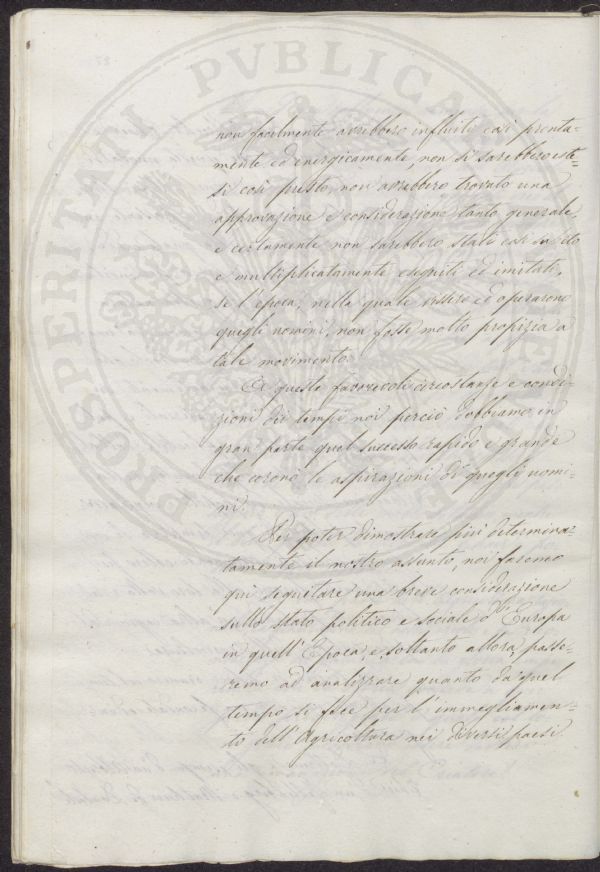 non facilmente avrebbero influiti così pronta=
mente ed energicamente, non si sarebbero este=
si così presto, non avrebbero trovato una
approvazione e considerazione tanto generale,
e certamente non sarebbero stati così subito
e multiplicatamente eseguiti ed imitati,
se l'epoca, nella quale vissero ed operarono
quegli uomini, non fosse molto propizia a
tale movimento.
A queste favorevoli circostanze e condi=
zioni dei tempi noi perciò dobbiamo in
gran parte quel successo rapido e grande
che coronò le aspirazioni di quegli uomi=
ni.
Per poter dimostrare più determina=
tamente il nostro assunto, noi faremo
qui seguitare una breve considerazione
sullo stato politico e sociale d' Europa
in quell' Epoca, e, soltanto allora, passe=
remo ad analizzare quanto da quel
tempo si fece per l' immegliamen=
to dell' Agricoltura nei diversi paesi.
PROSPERITATI PVBLICAE